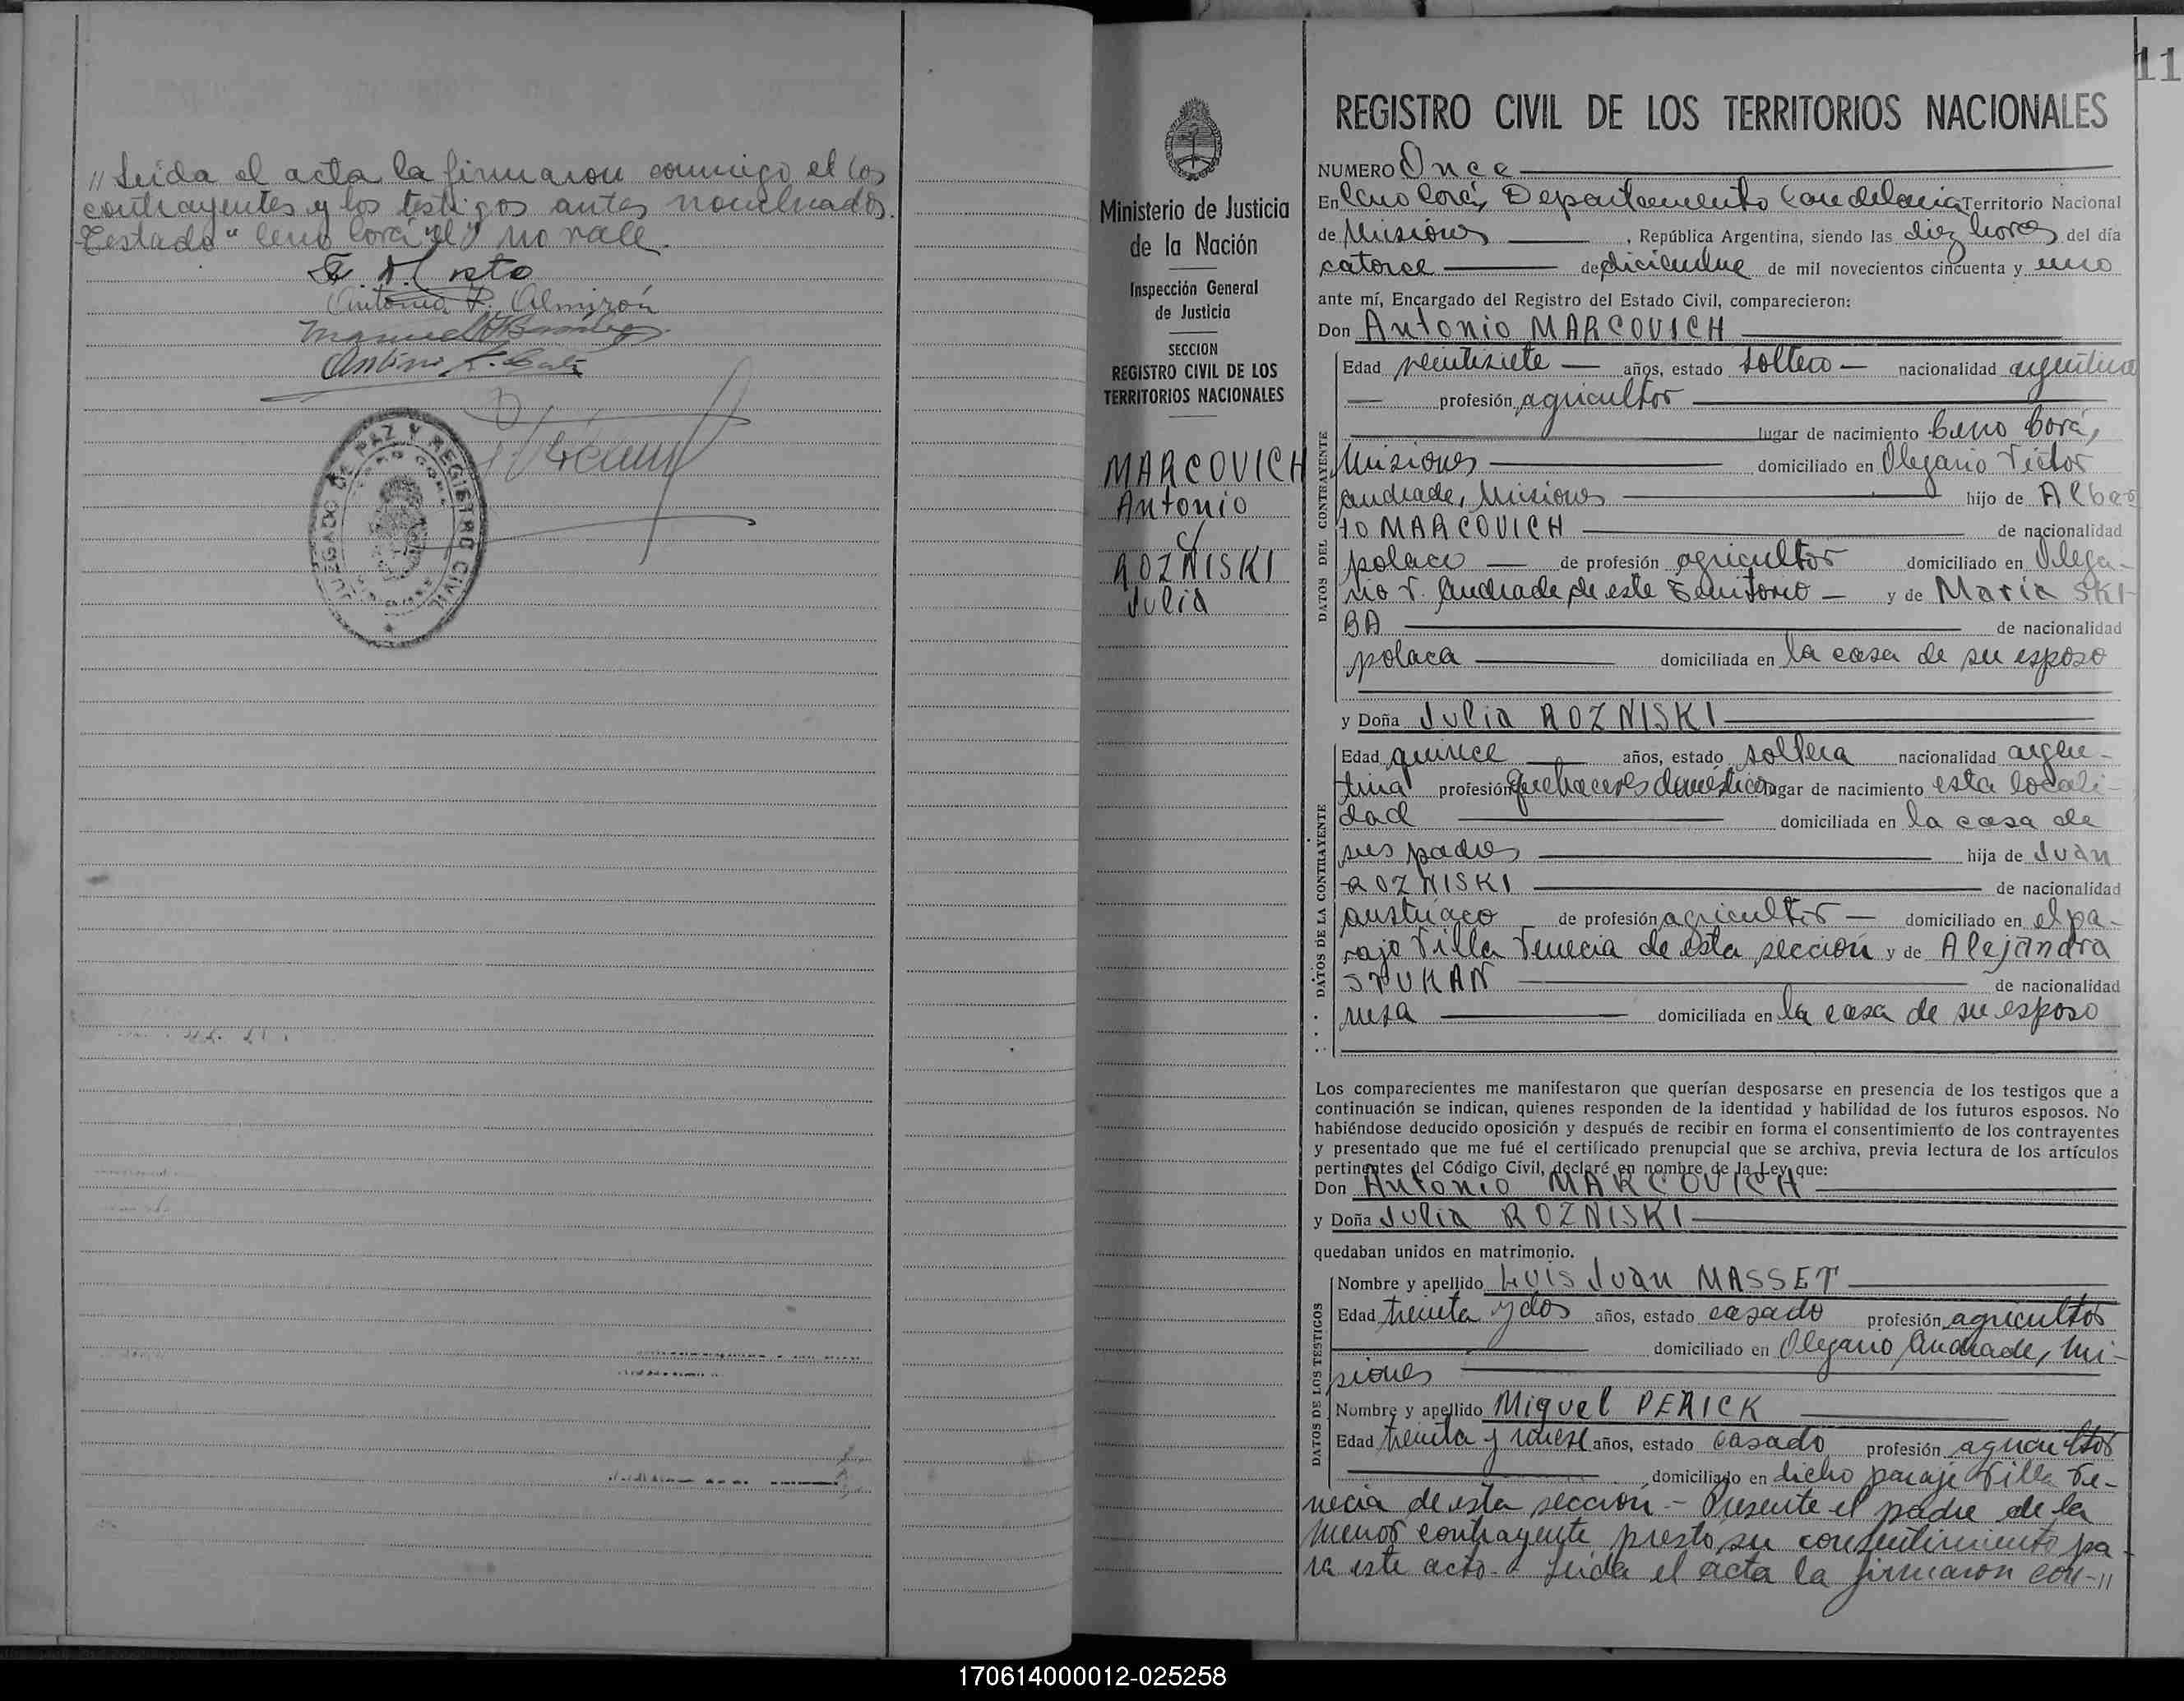 " Leida el acta la firmaron conmigo el los
contrayentes y los testigos antes nombrados.
Testado "Cerro Corá" "el" no vale.
Antonia R. Almirón
Manuel
Antonio
JUZGADO DE PAZ Y REGISTRO CIVIL
CERRO CORÁ
11
Ministerio de Justicia
de la Nación
Inspección General
de Justicia
SECCION
REGISTRO CIVIL DE LOS
TERRITORIOS NACIONALES
MARCOVICH
Antonio
c/
ROZNISKI
Julia
REGISTRO CIVIL DE LOS TERRITORIOS NACIONALES
NUMERO Once
En Cerro Corá, Departamento Candelaria Territorio Nacional
de Misiones, República Argentina, siendo las diez horas del día
catorce de diciembre de mil novecientos cincuenta y uno
ante mí, Encargado del Registro del Estado Civil, comparecieron:
Don Antonio MARCOVICH
DATOS DEL CONTRAYENTE
Edad veintisiete años, estado soltero nacionalidad argentina
profesión agricultor
lugar de nacimiento Cerro Corá,
Misiones domiciliado en Olegario Victor
Andrade, Misiones hijo de Alber
to MARCOVICH de nacionalidad
polaco de profesión agricultor domiciliado en Olega-
rio V. Andrade, de este Territorio y de María SKI-
BA de nacionalidad
polaca domiciliada en la casa de su esposo
y Doña Julia ROZNISKI
DATOS DE LA CONTRAYENTE
Edad quince años, estado soltera nacionalidad argen-
tina profesión quehaceres domésticos lugar de nacimiento esta locali-
dad domiciliada en la casa de
sus padres hija de Juan
ROZNISKI de nacionalidad
austriaco de profesión agricultor domiciliado en el pa-
raje Villa Venecia de esta sección y de Alejandra
STUKAN de nacionalidad
rusa domiciliada en la casa de su esposo
Los comparecientes me manifestaron que querían desposarse en presencia de los testigos que a
continuación se indican, quienes responden de la identidad y habilidad de los futuros esposos. No
habiéndose deducido oposición y después de recibir en forma el consentimiento de los contrayentes
y presentado que me fué el certificado prenupcial que se archiva, previa lectura de los artículos
pertinentes del Código Civil, declaré en nombre de la Ley que:
Don Antonio MARCOVICH
y Doña Julia ROZNISKI
quedaban unidos en matrimonio.
DATOS DE LOS TESTIGOS
Nombre y apellido Luis Juan MASSET
Edad treinta y dos años, estado casado profesión agricultor
domiciliado en Olegario Andrade, Mi-
siones
Nombre y apellido Miguel PERICK
Edad treinta y nueve años, estado casado profesión agricultor
domiciliado en dicho paraje Villa Ve-
necia de esta sección - Presente el padre de la
menor contrayente prestó su consentimiento pa-
ra este acto - Leida el acta la firmaron con-"
170614000012-025258